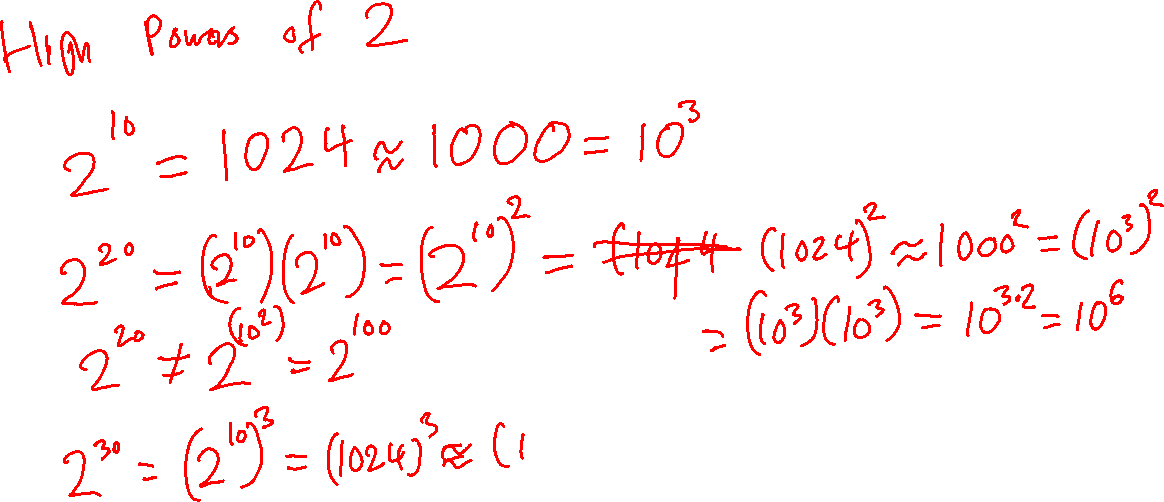 High Powers of 2
2^10 = 1024 ≈ 1000 = 10^3
2^20 = (2^10)(2^10) = (2^10)^2 = (1024)^2 ≈ 1000^2 = (10^3)^2
= (10^3)(10^3) = 10^3·2 = 10^6
2^20 ≠ 2^(10^2) = 2^100
2^30 = (2^10)^3 = (1024)^3 ≈ (1